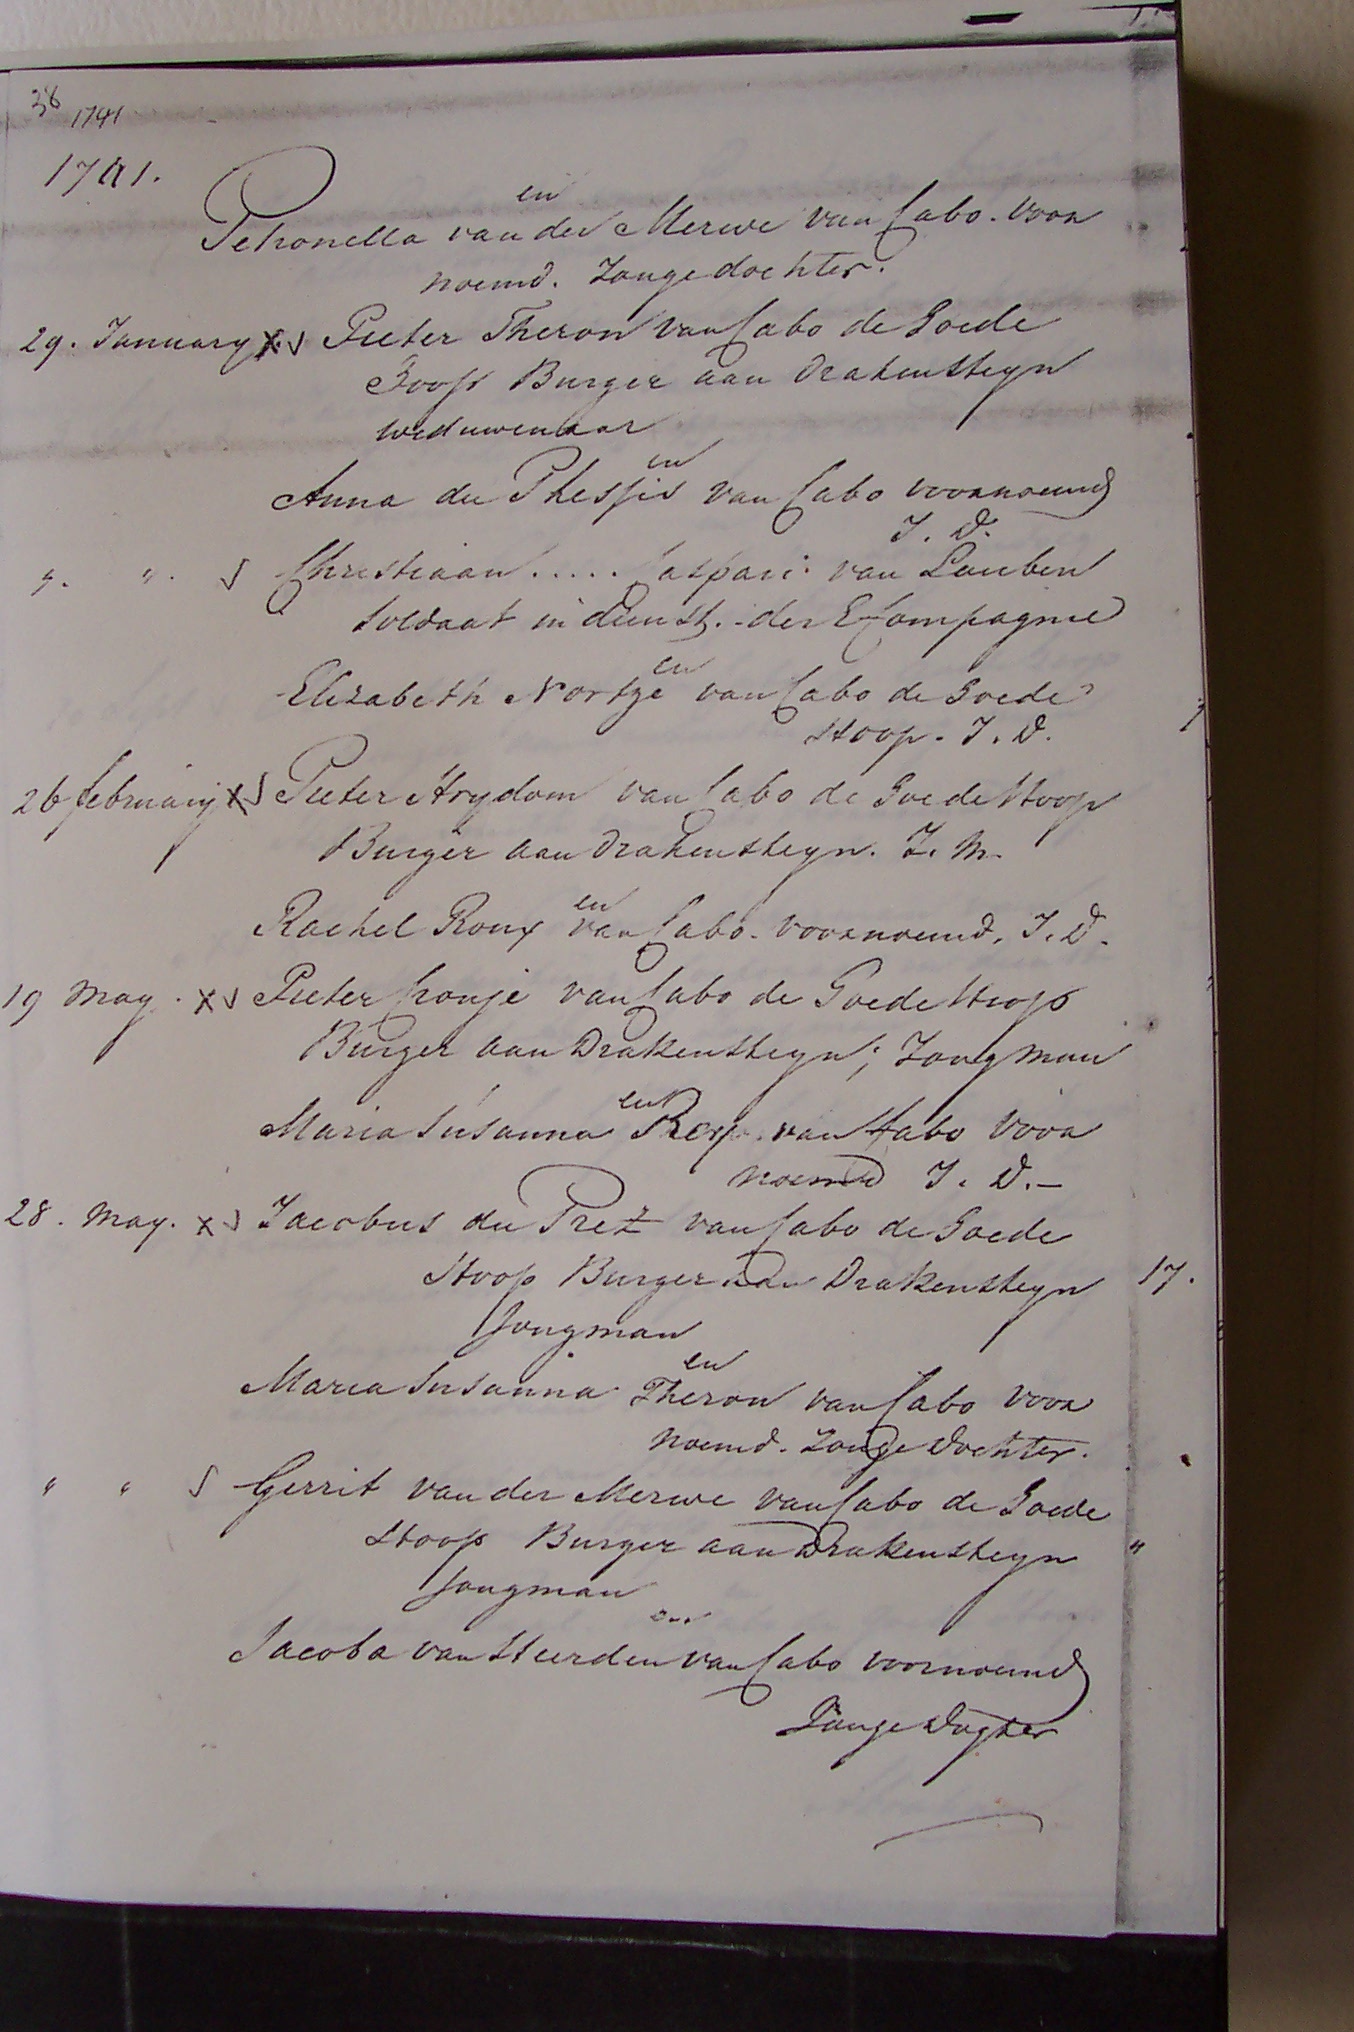 38
1741
1741.
en
Petronella van der Merwe van Cabo. voor
noemd. Jonge dochter.
29. January x√ Pieter Theron van Cabo de Goede
Hoop Burger aan Drakensteyn
weduwenaar
en
Anna du Plessis van Cabo voornoemd
J. D.
". ". √ Christiaan ..... Caspari van Leuben
Soldaat in dienst. der E Compagnie
en
Elizabeth Nortje van Cabo de Goede
Hoop. J. D.
26 february x√ Pieter Strydom van Cabo de Goede Hoop
Burger aan Drakensteyn. J. M.
en
Rachel Roux van Cabo. voornoemd. J. D.
19 May. x√ Pieter Cronje van Cabo de Goede Hoop
Burger aan Drakensteyn; Jongman
en
Maria Susanna van Cabo voor
noemd J. D. —
28. May. x√ Jacobus du Prez van Cabo de Goede
Hoop Burger aan Drakensteyn 17.
Jongman
en
Maria Susanna Theron van Cabo voor
noemd. Jonge Dochter.
" " √ Gerrit van der Merwe van Cabo de Goede
Hoop Burger aan Drakensteyn "
Jongman
en
Jacoba van Heerden van Cabo voornoemd
Jonge Dogter